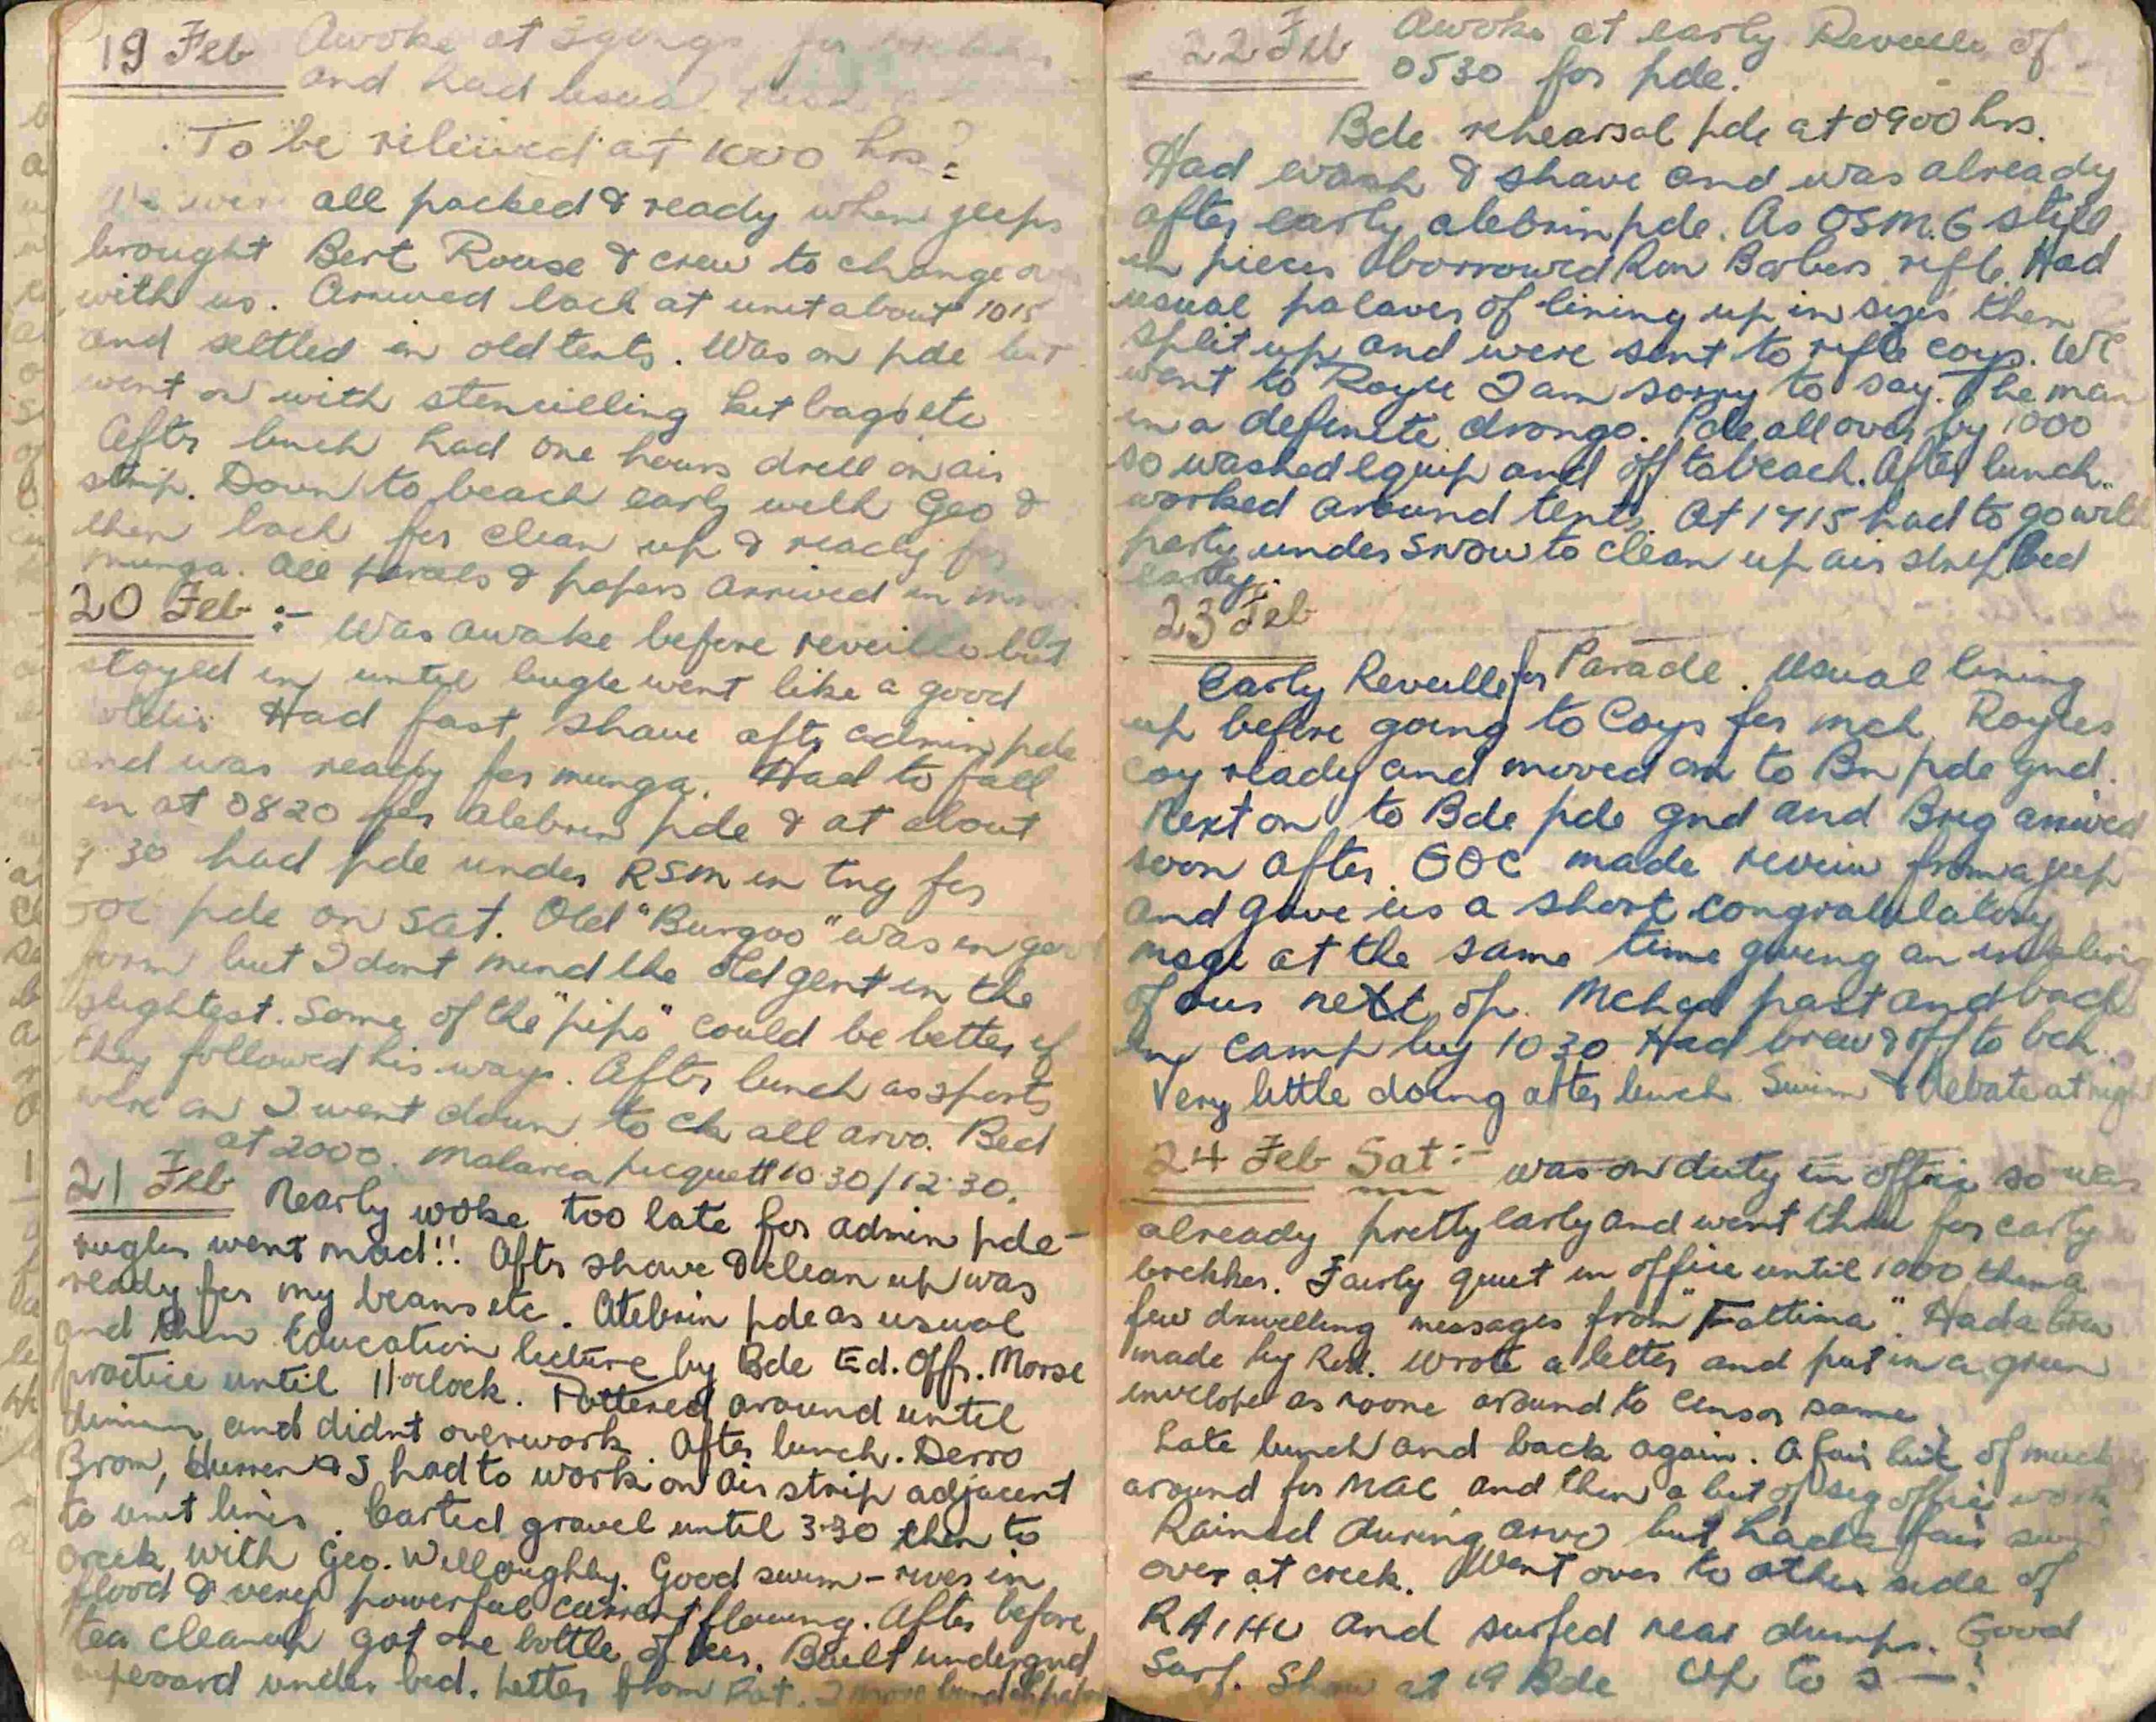 19 Feb Awoke at
and had usual
To be relieved at 1000 hrs?
all packed & ready when jeeps
brought Bert Rouse & crew to change
with us. Arrived back at unit about 1015
and settled in old tents. Was on pde but
went on with stencilling kit bags etc
After lunch had one hours drill on air
strip. Down to beach early with Geo &
then back for clean up & ready for
munga. All parcels & papers arrived in
20 Feb :- Was awake before reveille but
stayed in until bugle went like a good
Had fast shave aftr admin pde
and was ready for munga. Had to fall
in at 0820 for Atebrin pde & at about
30 had pde under RSM in tng for
GOC pde on Sat. Old "Burgoo" was in good
form but I dont mind the old gent in the
slightest. Some of the "pips" could be better if
they followed his ways. Aftr lunch as sports
were on I went down to ck all arvo. Bed
at 2000. Malaria picquett 10.30/12.30.
21 Feb Nearly woke too late for admin pde -
bugler went mad!! Aftr shave & clean up was
ready for my beans etc. Atebrin pde as usual
and then Education lecture by Bde Ed. Offr. Morse
practice until 11 oclock. Pottered around until
dinner and didnt overwork. After lunch. Derro
Brom, & I had to work on air strip adjacent
to unit lines. Carted gravel until 3.30 then to
creek with Geo. Willoughby. Good swim - river in
flood & very powerful current flowing. After before
tea cleanup got one bottle of beer. Built undergnd
under bed. Letter from Pat.
22 Feb Awoke at early Reveille of
0530 for pde.
Bde rehearsal pde at 0900 hrs.
Had wash & shave and was already
after early atebrin pde. As OSM.G still
in pieces borrowed Ron Barbers rifle. Had
usual palaver of lining up in sizes then
split up and were sent to rifle coys. We
went to Royle I am sorry to say. The man
is a definite drongo. Pde all over by 1000
so washed equip and off to beach. After lunch
worked around tents. At 1715 had to go with
party under Snow to clean up air strip Bed
early.
23 Feb
Early Reveille for Parade. Usual lining
up before going to Coys for mch Royles
Coy ready and moved on to Bn pde gnd.
Next on to Bde pde gnd and Brig arrived
soon after. GOC made reveiw from a jeep
and gave us a short congratulatory
msge at the same time giving an inkling
of our next op. Mched past and back
in camp by 1030 Had brew & off to bch.
Very little doing after lunch. Swim & Debate at night
24 Feb Sat:- was on duty in office so was
already pretty early and went thru for early
brekker. Fairly quiet in office until 1000 then a
few drivelling messages from "Fattima". Had a brew
made by Red. Wrote a letter and put in a green
envelope as noone around to censor same.
Late lunch and back again. A fair bit of muck
around for MAC and then a bit of sig office work
Rained during arvo but had a fair swim
over at creek. Went over to other side of
RAIHU and surfed near dumps. Good
Surf. Show at 19 Bde Up to s—!